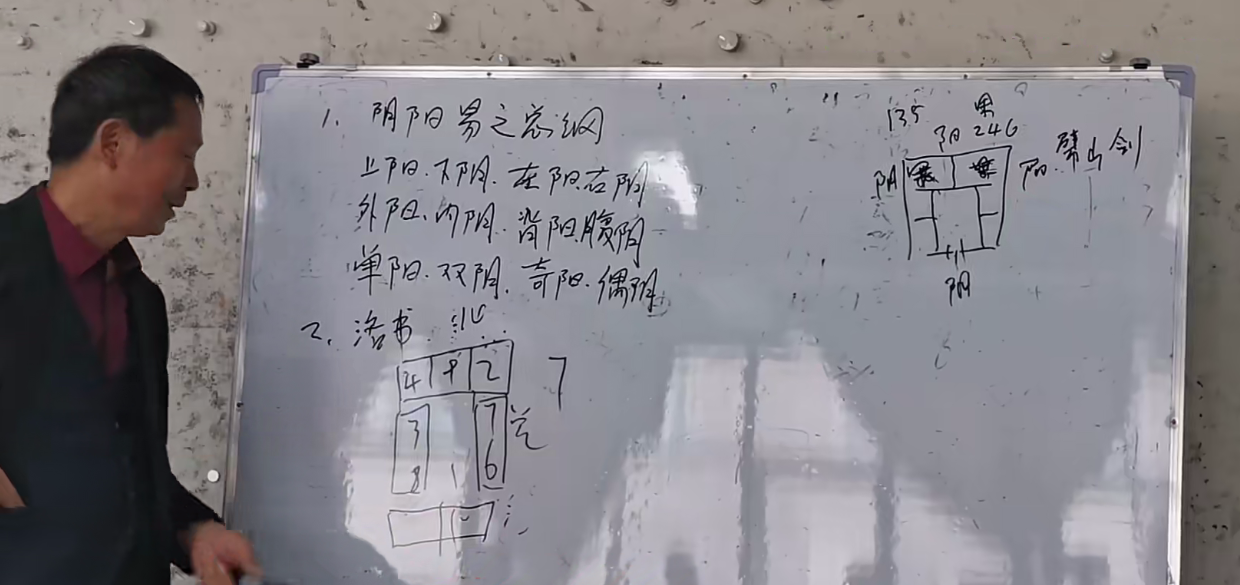 1. 阴阳易之总纲
上阳.下阴.左阳右阴
外阳.内阴.背阳腹阴
单阳.双阴.奇阳.偶阴
2. 洛书
4 9 2
7
3 7
8 1 6
135
阳 246
阴
阳
劈山剑
阴